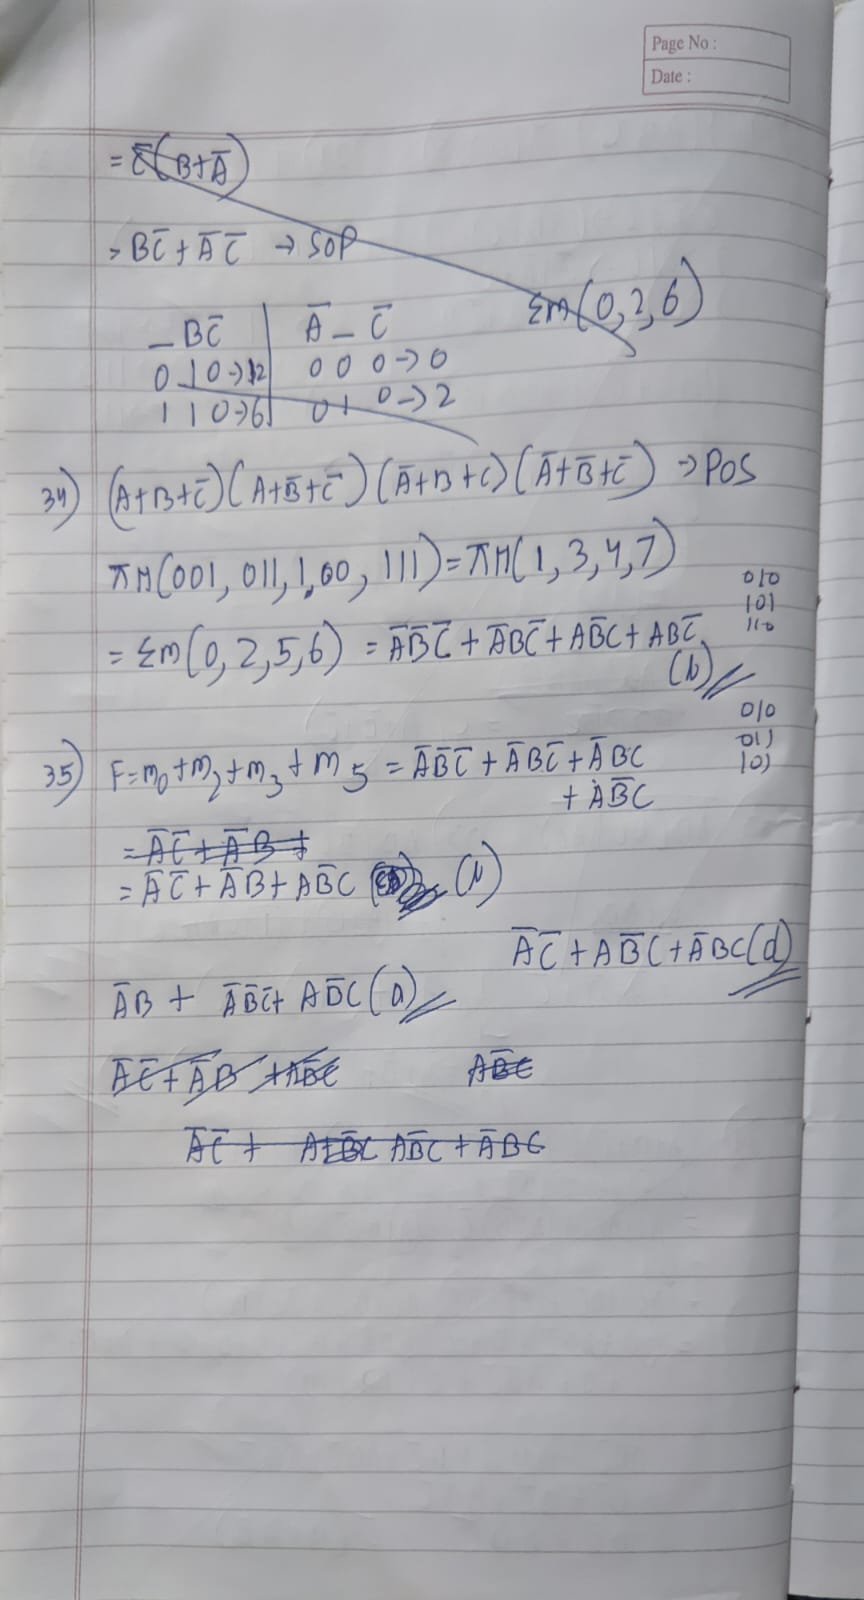 Page No :
Date :
= C̅(B+A̅)
= BC̅ + A̅ C̅ → SOP
Σm(0,2,6)
_ BC̅ | A̅ _ C̅
0 1 0 → 2 | 0 0 0 → 0
1 1 0 → 6 | 0 1 0 → 2
34) (A+B+C̅)(A+B̅+C̅)(A̅+B+C)(A̅+B̅+C̅) → POS
πM(001, 011, 100, 111) = πM(1,3,4,7)
010
101
110
= Σm(0,2,5,6) = A̅B̅C̅ + A̅BC̅ + AB̅C + ABC̅
(b)
010
011
101
35) F = m₀+m₂+m₃+m₅ = A̅B̅C̅ + A̅BC̅ + A̅BC
+ AB̅C
= A̅C̅ + A̅B +
= A̅C̅ + A̅B + AB̅C (b)
A̅C̅ + AB̅C + A̅BC (d)
A̅B + A̅B̅C̅ + AB̅C (a)
A̅C̅ + A̅B + AB̅C AB̅C
A̅C̅ + AB̅C + A̅BC